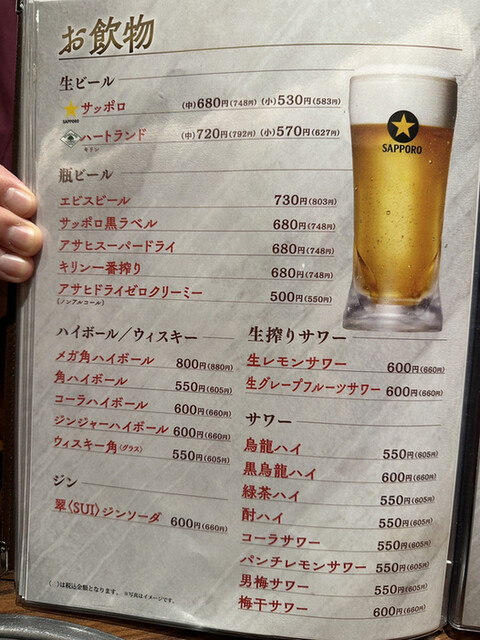 お飲物
生ビール
SAPPORO
サッポロ (中)680円(748円) (小)530円(583円)
ハートランド (中)720円(792円) (小)570円(627円)
キリン
SAPPORO
瓶ビール
エビスビール 730円(803円)
サッポロ黒ラベル 680円(748円)
アサヒスーパードライ 680円(748円)
キリン一番搾り 680円(748円)
アサヒドライゼロクリーミー 500円(550円)
(ノンアルコール)
ハイボール／ウィスキー
メガ角ハイボール 800円(880円)
角ハイボール 550円(605円)
コーラハイボール 600円(660円)
ジンジャーハイボール 600円(660円)
ウィスキー角〈グラス〉 550円(605円)
ジン
翠〈SUI〉ジンソーダ 600円(660円)
生搾りサワー
生レモンサワー 600円(660円)
生グレープフルーツサワー 600円(660円)
サワー
烏龍ハイ 550円(605円)
黒烏龍ハイ 600円(660円)
緑茶ハイ 550円(605円)
酎ハイ 550円(605円)
コーラサワー 550円(605円)
パンチレモンサワー 550円(605円)
男梅サワー 550円(605円)
梅干サワー 600円(660円)
( )は税込金額となります。 ※写真はイメージです。